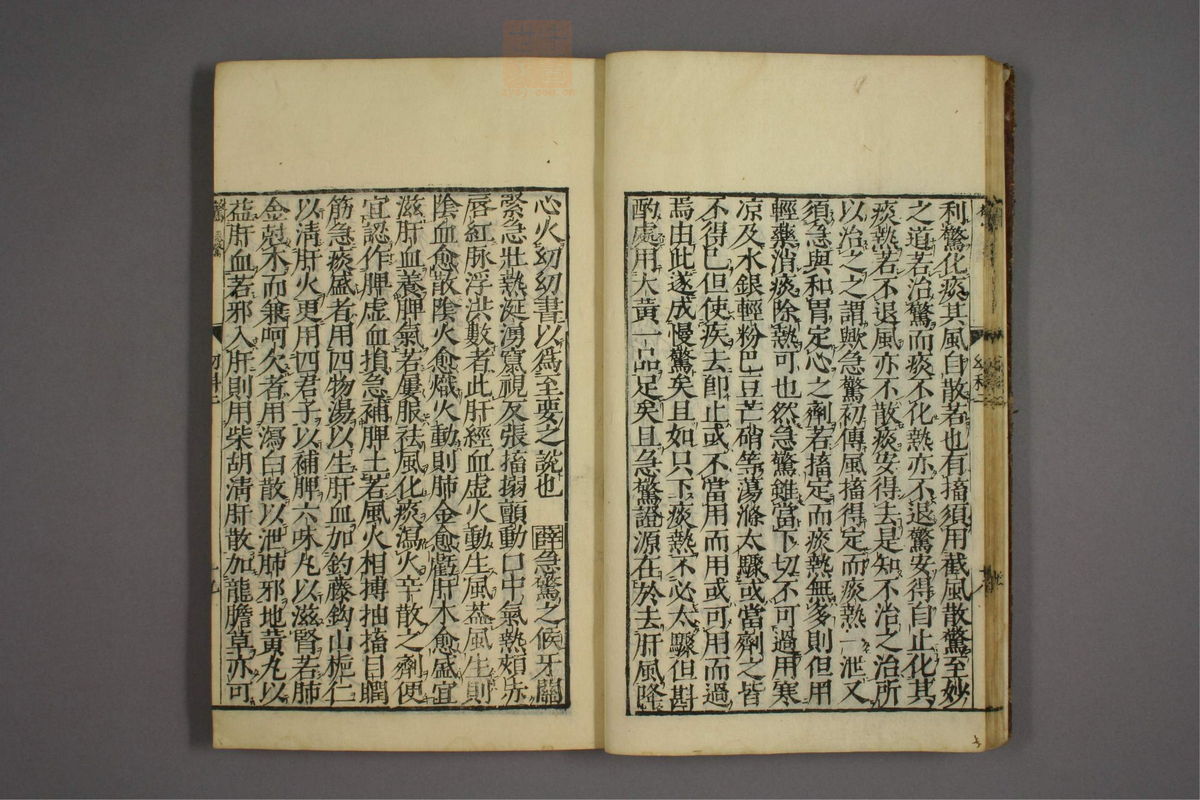 利驚化痰其風自散若也有搐須用截風散驚至妙
之道若治驚而痰不化熱亦不退驚安得自止化其
痰熱若不退風亦不散痰安得去是知不治之治所
以治之之謂歟急驚初傳風搐得定而痰熱一泄又
須急與和胃定心之劑若搐定而痰熱無多則但用
輕藥消痰除熱可也然急驚雖當下切不可過用寒
凉及水銀輕粉巴豆芒硝等蕩滌太驟或當劑之皆
不得已但使疾去即止或不當用而用或可用而過
焉由此遂成慢驚矣且如只下痰熱不必太驟但斟
酌處用大黃一品足矣且急驚證源在於去肝風降
心火幼幼書以爲至要之說也 薛急驚之候牙關
緊急壯熱涎湧竄視反張搐搦顫動口中氣熱頰赤
唇紅脉浮洪數者此肝經血虛火動生風蓋風生則
陰血愈散陰火愈熾火動則肺金愈虧肝木愈盛宜
滋肝血養脾氣若屢服祛風化痰瀉火辛散之劑便
宜認作脾虛血損急補脾土若風火相搏抽搐目瞤
筋急痰盛者用四物湯以生肝血加釣藤鈎山梔仁
以淸肝火更用四君子以補脾六味丸以滋腎若肺
金尅木而兼呵欠者用瀉白散以泄肺邪地黃丸以
益肝血若邪入肝則用柴胡淸肝散加龍膽草亦可
幼科二